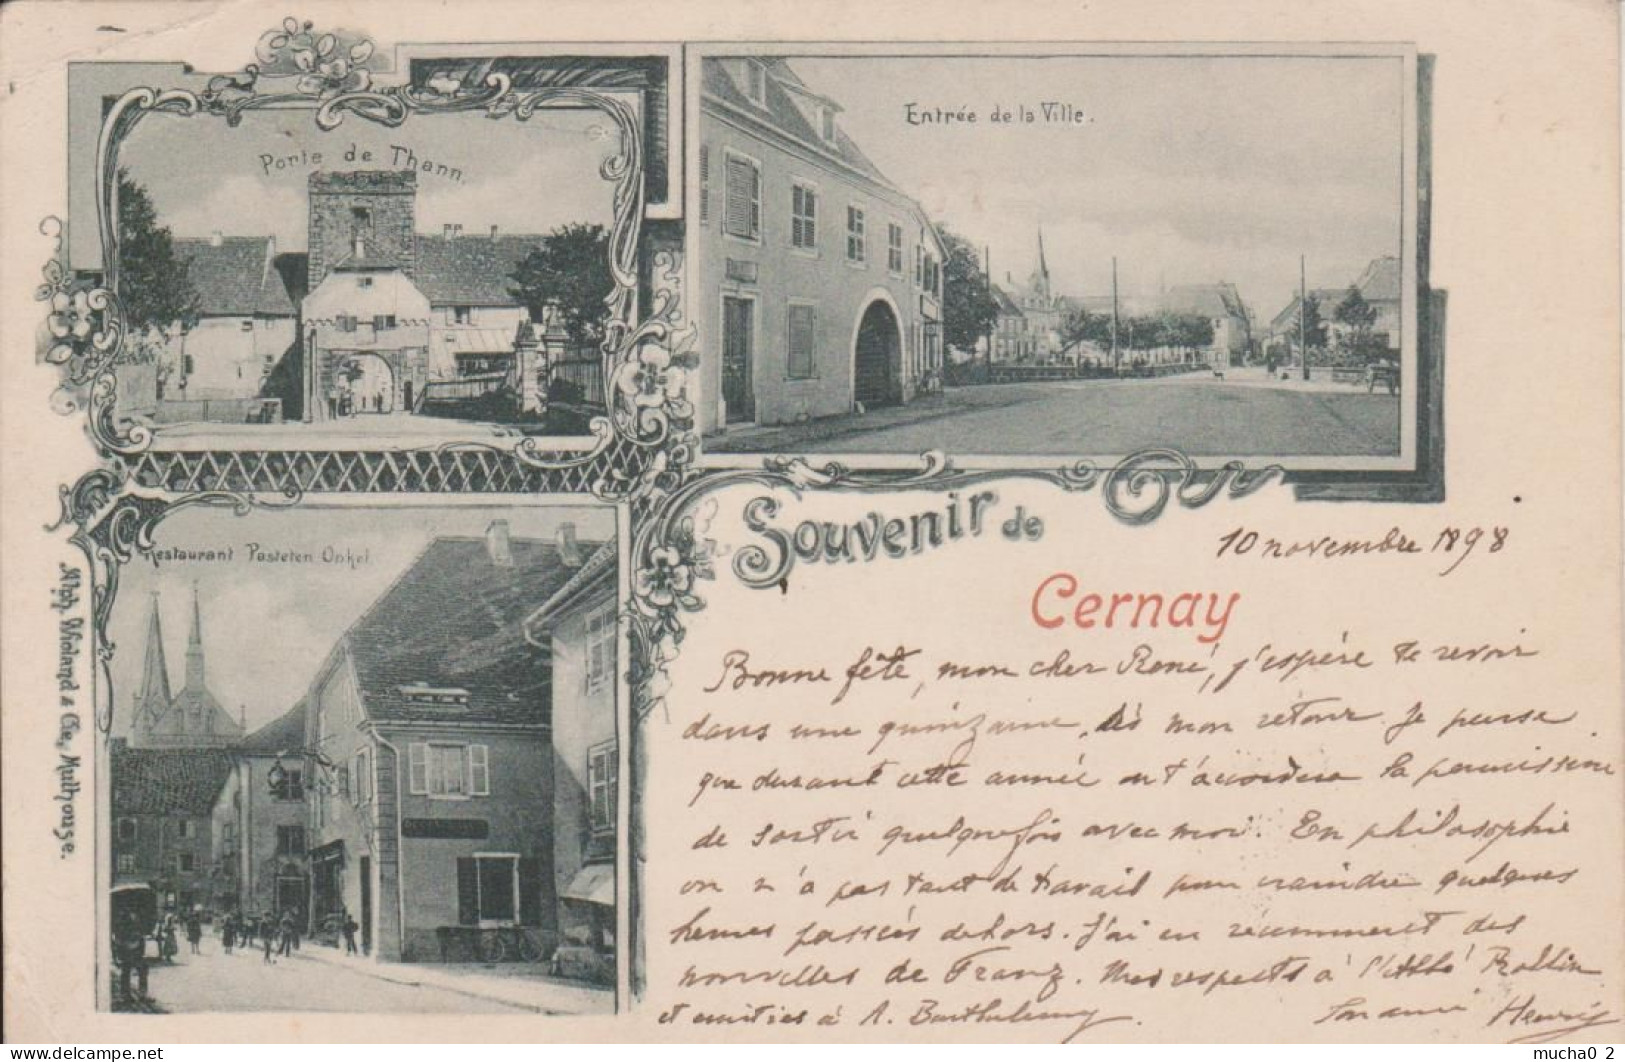 Porte de Thann.
Entrée de la Ville.
Restaurant Pasteten Onkel
Alph. Wioland & Cie, Mulhouse.
Souvenir de
Cernay
10 novembre 1898
Bonne fête, mon cher René, j'espère te revoir
dans une quinzaine, dès mon retour. Je pense
que durant cette année on t'accordera la permission
de sortir quelquefois avec moi. En philosophie
on n'a pas tant de travail pour craindre quelques
heures passées dehors. J'ai eu récemment des
nouvelles de Franz. Mes respects à l'Abbé Rollin
et amitiés à A. Barthelemy. Ton ami Henri
mucha0_2